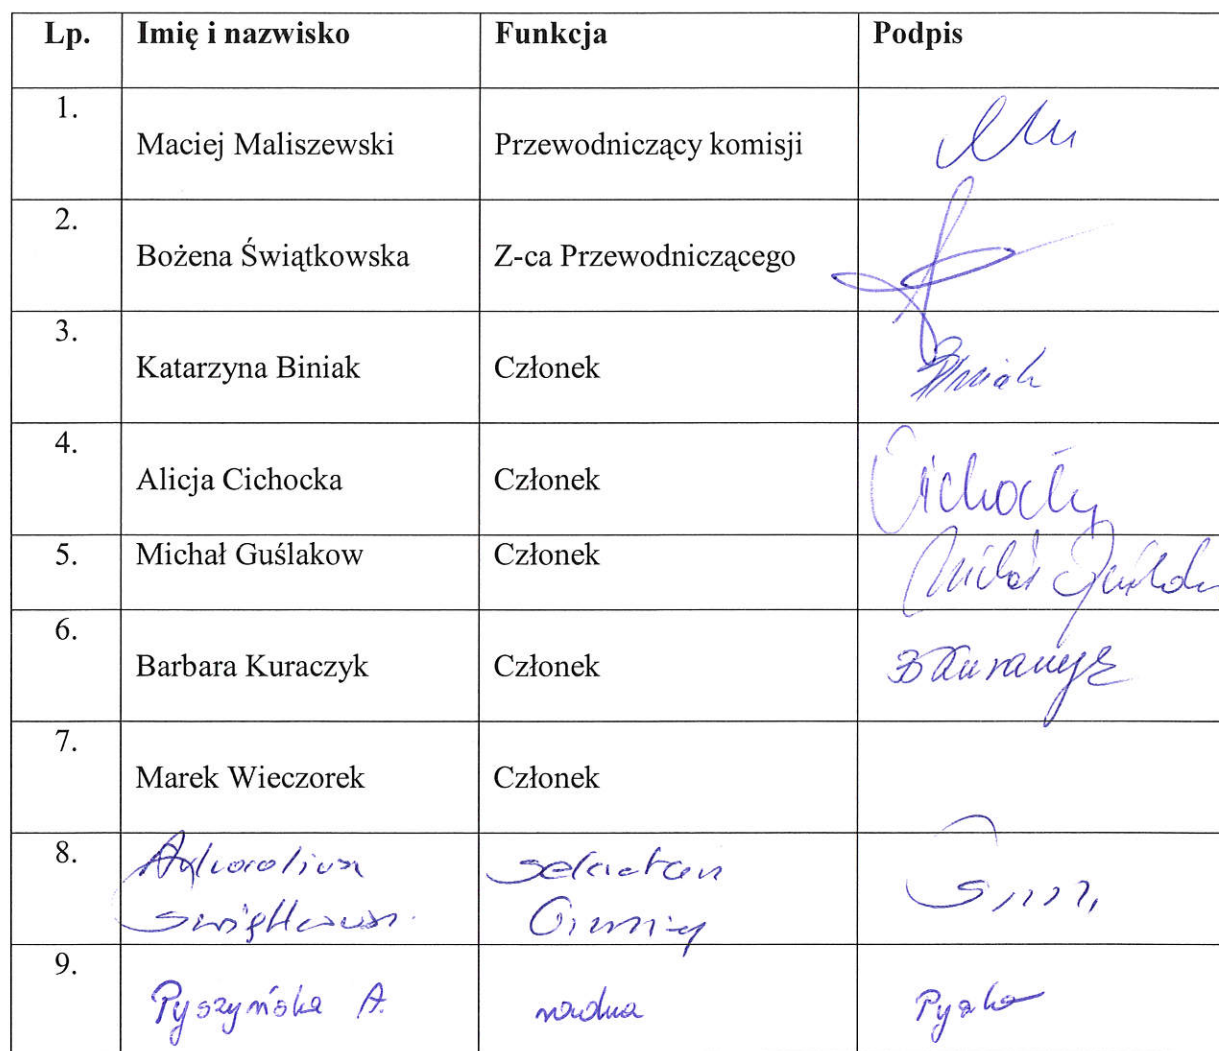 Lp. Imię i nazwisko Funkcja Podpis
1. Maciej Maliszewski Przewodniczący komisji
2. Bożena Świątkowska Z-ca Przewodniczącego
3. Katarzyna Biniak Członek Biniak
4. Alicja Cichocka Członek
5. Michał Guślakow Członek Michał
6. Barbara Kuraczyk Członek B Kuraczyk
7. Marek Wieczorek Członek
8. Sekretarz
Gminy
9. Pyszyńska A. radna